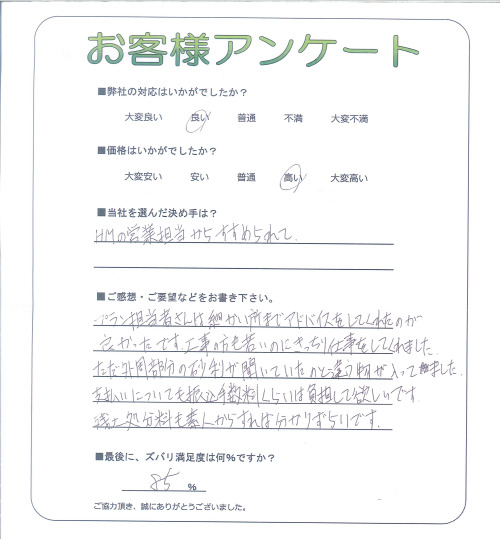 お客様アンケート
■弊社の対応はいかがでしたか？
大変良い 良い 普通 不満 大変不満
■価格はいかがでしたか？
大変安い 安い 普通 高い 大変高い
■当社を選んだ決め手は？
HMの営業担当からすすめられて、
■ご感想・ご要望などをお書き下さい。
プラン担当者さんは細かい所までアドバイスをしてくれたのが
良かったです。工事の方も若いのにきっちり仕事をしてくれました。
ただ外周部分の砂利が聞いていたのと違う物が入って来ました。
支払いについても振込手数料くらいは負担して欲しいです。
残土処分料も素人からすれば分かりずらいです。
■最後に、ズバリ満足度は何％ですか？
85 %
ご協力頂き、誠にありがとうございました。